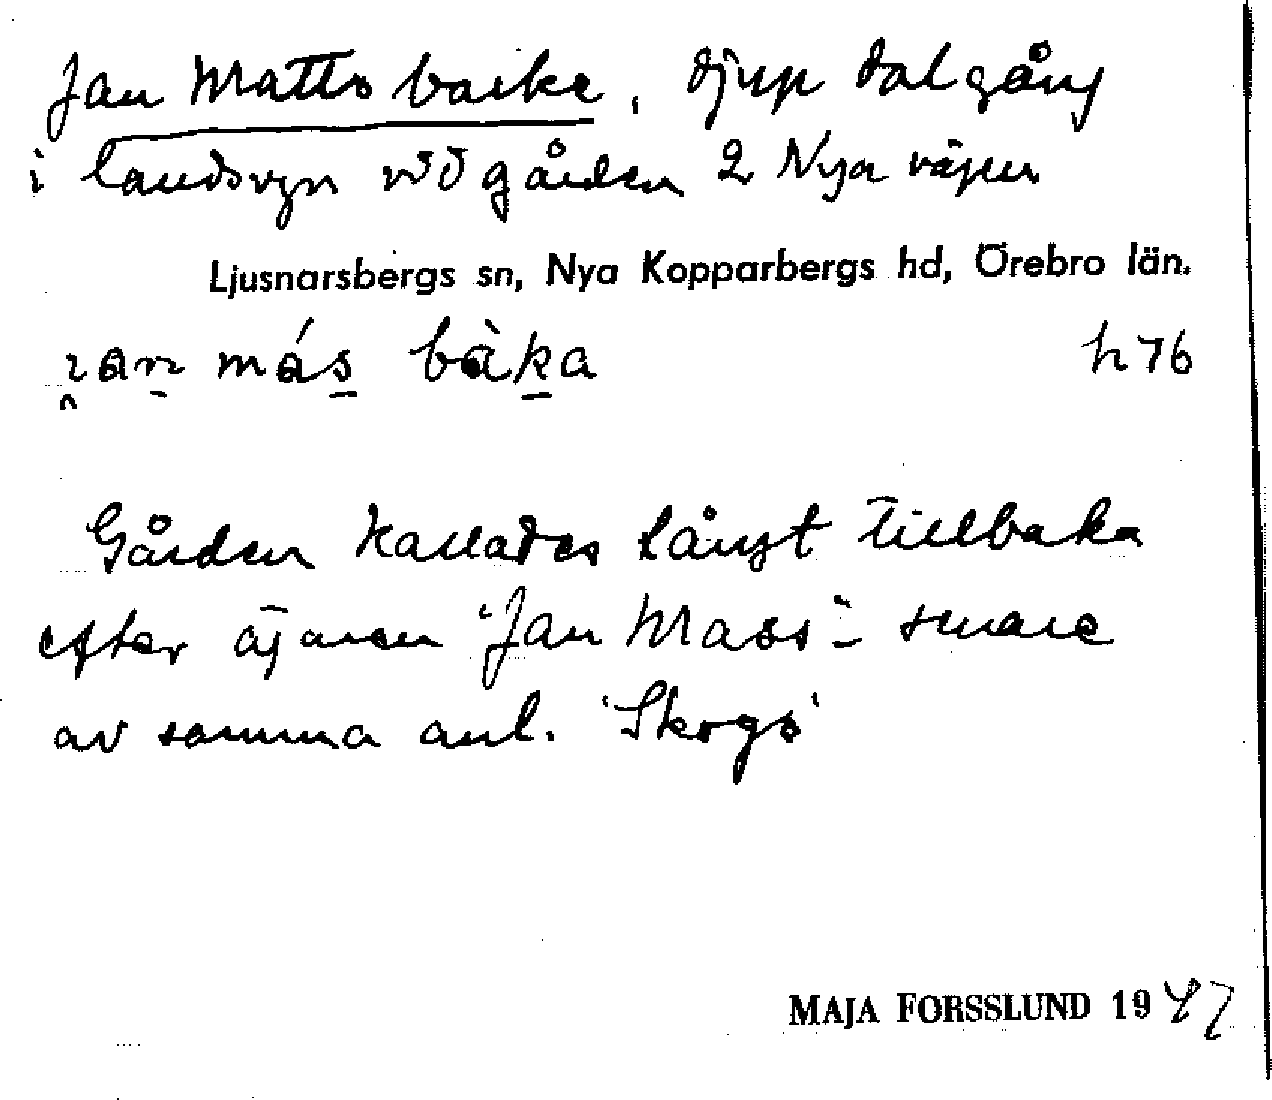 Jan Matts backe, djup dalgång
i landsvgn vid gården 2 Nya vägen
Ljusnarsbergs sn, Nya Kopparbergs hd, Örebro län.
ı̯an más bàka h 76
Gården kallades långt tillbaka
efter ägaren "Jan Mass" - senare
av samma anl. 'Skogs'
MAJA FORSSLUND 1947